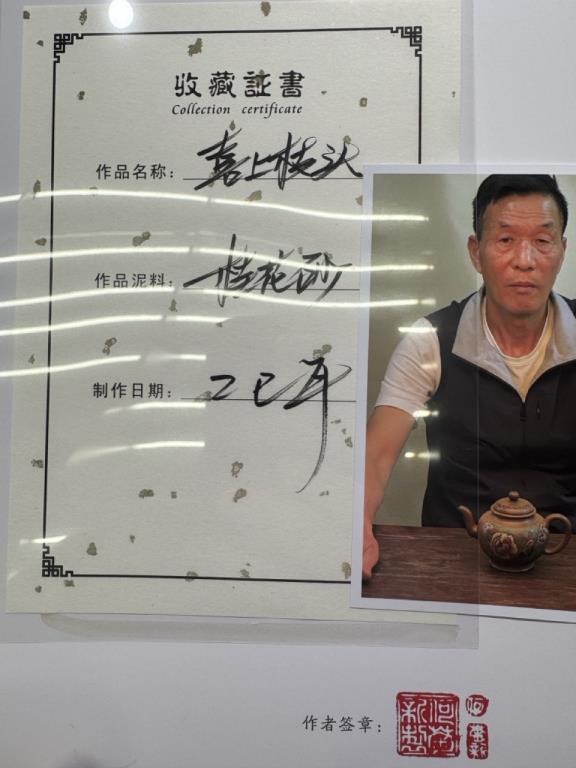 收藏証書
Collection certificate
作品名称：喜上枝头
作品泥料：桂花砂
制作日期：乙巳年
作者签章：